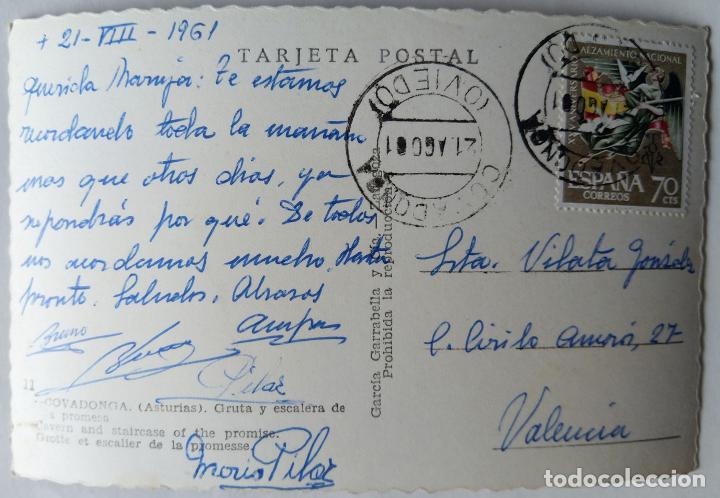 + 21-VIII-1961
TARJETA POSTAL
Querida Maruja: Te estamos
recordando toda la mañana
mas que otros dias, ya
supondrás por qué. De todos
nos acordamos mucho. Hasta
pronto. Saludos, Abrazos
Bruno
Amparo
Pilar
11
COVADONGA. (Asturias). Gruta y escalera de
la promesa
Cavern and staircase of the promise.
Grotte et escalier de la promesse.
María Pilar
García Garrabella y Cía. - Zaragoza
Prohibida la reproducción
COVADONGA
(OVIEDO)
21.AGO 61
ALZAMIENTO NACIONAL
XXV ANIVERSARIO
ESPAÑA 70
CORREOS CTS
Srta. Vilata González
C. Cirilo Amorós, 27
Valencia
todocoleccion